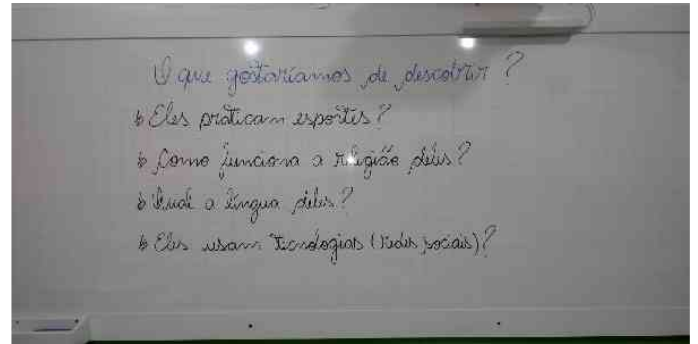 O que gostaríamos de descobrir?
Eles praticam esportes?
Como funciona a religião deles?
Qual é a língua deles?
Eles usam tecnologias (redes sociais)?